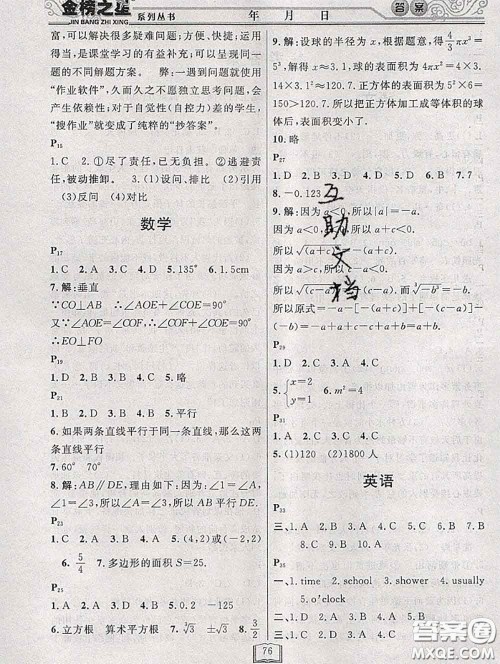 金榜之星
JIN BANG ZHI XING
系列丛书
年 月 日
答案
富,可以解决很多疑难问题;方便快
捷,是课堂学习的有益补充;可以呈现同一题
的不同解题方案。 弊:一遇到问题就使用
“作业软件”,久而久之不愿独立思考问题,会
产生依赖性;对于自觉性(自控力)差的学生,
“搜作业”就变成了纯粹的“抄答案”。
P15
1. C 2. ①尽了责任,已无负担。 ②逃避责
任,被动推卸。 3. (1)设问、排比 (2)引用
(3)反问 (4)对比
数学
P17
1. C 2. A 3. C 4. D 5. 135° 6. 1.5cm
7. 解:垂直
∵CO⊥AB ∴∠AOE+∠COE=90°
又∵∠AOE=∠COF ∴∠COE+∠COF=90°
∴EO⊥FO
P19
1. D 2. B 3. D 4. C 5. 略
P21
1. D 2. D 3. B 4. A 5. 平行
6. 如果两条直线平行于同一条直线,那么这两
条直线平行
7. 60° 70°
8. 解:AB∥DE,理由:因为AC∥DF,所以
∠1=∠3,又∠1=∠2,所以∠2=∠3,所以AB∥DE.
P23
1. B 2. B 3. A 4. C 5. (4,2)或(-2,2)
6. 5/4 7. 多边形的面积 S=25.
P25
1. D 2. C 3. D 4. B 5. 0.2 -125
6. 立方根 算术平方根 7. ±√3 8. 3/2
9. 解:设球的半径为x,根据题意,得4/3πx³=
5³,解得x≈3.1.所以球的表面积4πx²=4×
3.1²×π≈120.7.而正方体的表面积5²×6=
150>120.7.所以把正方体加工成等体积的球
体后,表面积变小了.
10. 略
P27
1. B 2. D 3. C 4. D 5. A 6. B 7. B
8. -0.123
9. 解:因为a<0,所以|a|=-a.
因为a<0,
所以
因为a>c,所以
所以 而∛-b³=-b.
所以原式=-a-[-(a+c)]+[-(c-a)]-
(-b)=-a+a+c-c+a+b=a+b.
P29
1. D 2. A 3. A 4. C
5. {x=2 y=1 6. m²=4
P31
1. C 2. B 3. A 4. C
5. (1)120 (2)1800人
英语
P33
一、1. A 2. B 3. C 4. C 5. B
二、1. time 2. school 3. shower 4. usually
5. clock
三、1. D 2. C 3. C 4. A 5. B 6. A
7. D 8. A 9. B 10. A
P35
一、1. D 2. A 3. B 4. C 5. C
互助文档
76
答案圈
MXQE.COM